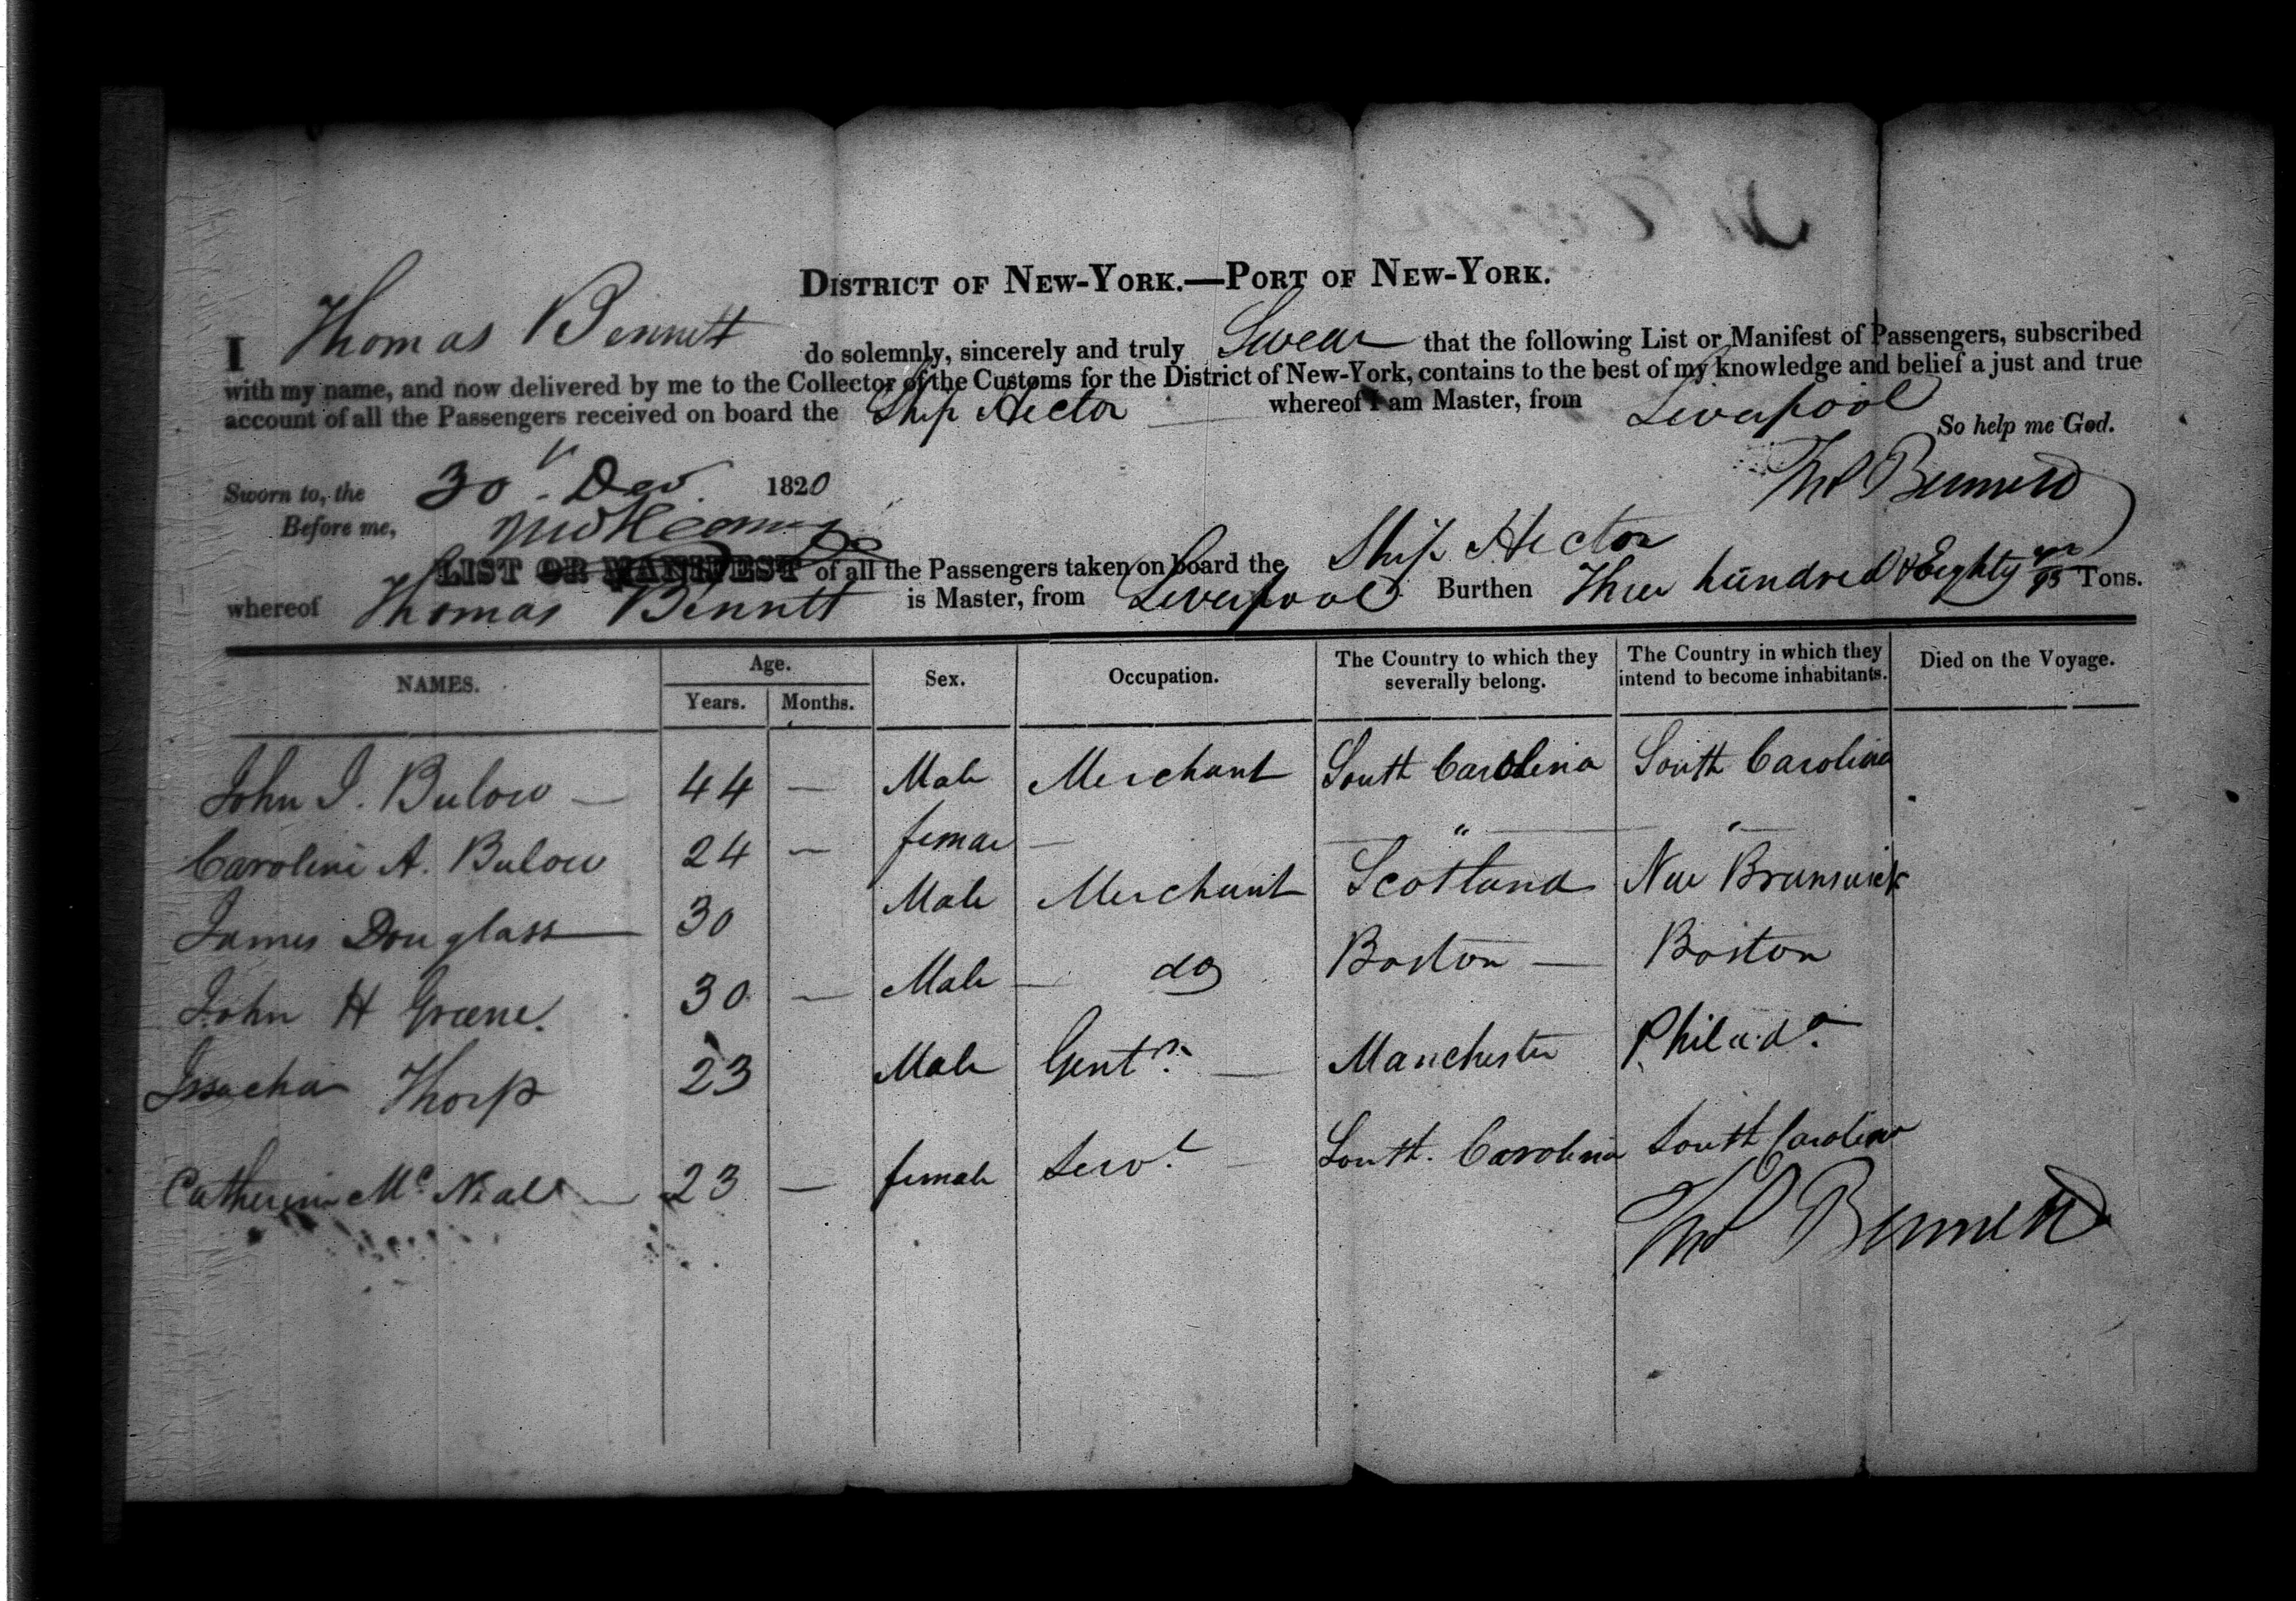 DISTRICT OF NEW-YORK.—PORT OF NEW-YORK.
I Thomas Bennett do solemnly, sincerely and truly Swear that the following List or Manifest of Passengers, subscribed
with my name, and now delivered by me to the Collector of the Customs for the District of New-York, contains to the best of my knowledge and belief a just and true
account of all the Passengers received on board the Ship Hector whereof I am Master, from Liverpool So help me God.
Sworn to, the 30 Dec. 1820 Thos Bennett
Before me,
LIST OR MANIFEST of all the Passengers taken on board the Ship Hector
whereof Thomas Bennett is Master, from Liverpool Burthen Three hundred & Eighty 95 Tons.
NAMES. Age. Sex. Occupation. The Country to which they severally belong. The Country in which they intend to become inhabitants. Died on the Voyage.
Years. Months.
John J. Bulow — 44 — Male Merchant South Carolina South Carolina
Caroline A. Bulow 24 — femae — — " — " —
James Douglass — 30 Male Merchant Scotland New Brunswick
John H Greene. 30 — Male — do Boston — Boston
Issachar Thorp 23 Male Gentn. — Manchester Philada.
Catherine Mc Neal — 23 — female Servt. — South. Carolina South Carolina
Thos Bennett